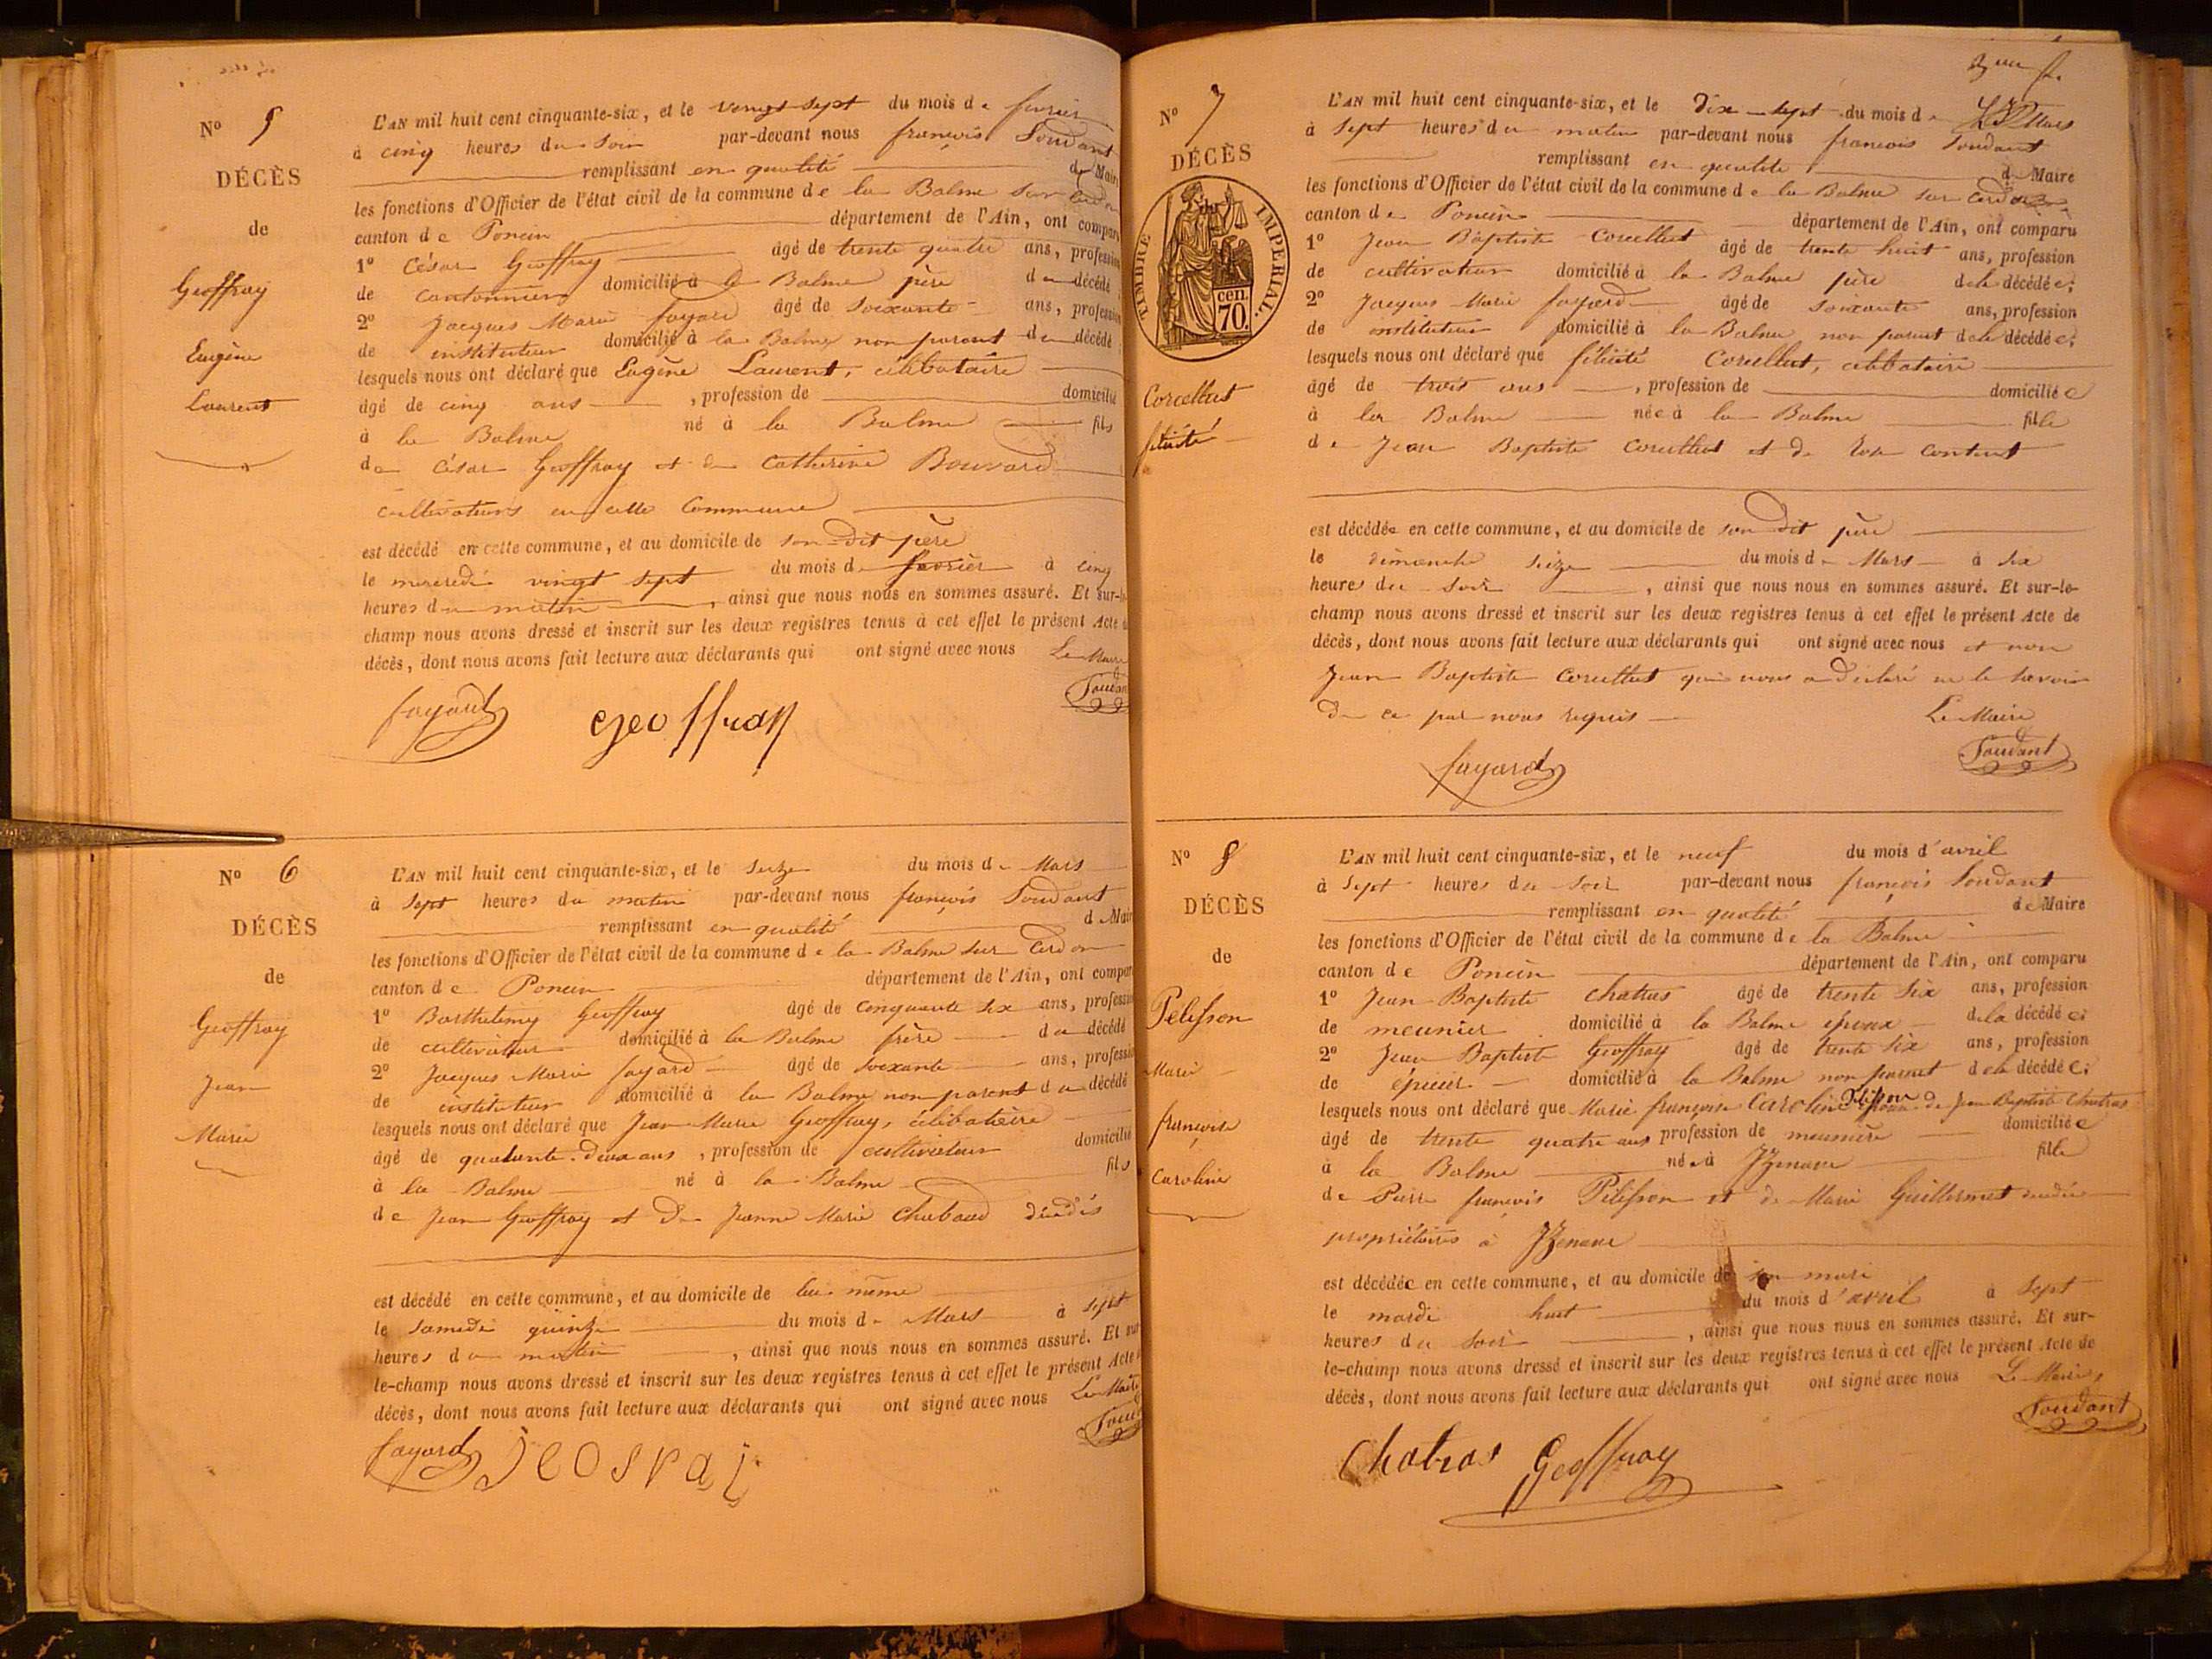 N° 5
DÉCÈS
de
Geoffray
Eugène
Laurent
L'AN mil huit cent cinquante-six, et le vingt sept du mois de février
à cinq heures du soir par-devant nous françois Soudant
remplissant en qualité de Maire
les fonctions d'Officier de l'état civil de la commune de la Balme sur Cerdon
canton de Poncin département de l'Ain, ont comparu
1° César Geoffray âgé de trente quatre ans, profession
de cantonnier domicilié à la Balme père du décédé
2° Jacques Marie fayard âgé de soixante ans, profession
de instituteur domicilié à la Balme non parent du décédé
lesquels nous ont déclaré que Eugène Laurent, célibataire
âgé de cinq ans, profession de domicilié
à la Balme né à la Balme fils
de César Geoffray et de Catherine Bouvard
cultivateurs en cette commune
est décédé en cette commune, et au domicile de son dit père
le mercredi vingt sept du mois de février à cinq
heures du matin, ainsi que nous nous en sommes assuré. Et sur-le-
champ nous avons dressé et inscrit sur les deux registres tenus à cet effet le présent Acte de
décès, dont nous avons fait lecture aux déclarants qui ont signé avec nous Le Maire
fayard geoffray Soudant
N° 6
DÉCÈS
de
Geoffray
Jean
Marie
L'AN mil huit cent cinquante-six, et le seize du mois de Mars
à sept heures du matin par-devant nous françois Soudant
remplissant en qualité de Maire
les fonctions d'Officier de l'état civil de la commune de la Balme sur Cerdon
canton de Poncin département de l'Ain, ont comparu
1° Barthelemy Geoffray âgé de cinquante six ans, profession
de cultivateur domicilié à la Balme frère du décédé
2° Jacques Marie fayard âgé de soixante ans, profession
de instituteur domicilié à la Balme non parent du décédé
lesquels nous ont déclaré que Jean Marie Geoffray, célibataire
âgé de quarante-deux ans, profession de cultivateur domicilié
à la Balme né à la Balme fils
de Jean Geoffray et de Jeanne Marie Chabaud décédés
est décédé en cette commune, et au domicile de lui même
le samedi quinze du mois de Mars à sept
heures du matin, ainsi que nous nous en sommes assuré. Et sur-
le-champ nous avons dressé et inscrit sur les deux registres tenus à cet effet le présent Acte de
décès, dont nous avons fait lecture aux déclarants qui ont signé avec nous Le Maire
fayard jeosraj Soudant
N° 7
DÉCÈS
TIMBRE IMPERIAL.
cen.
70.
Corcellut
félicité
L'AN mil huit cent cinquante-six, et le dix-sept du mois de Mars
à sept heures du matin par-devant nous francois Soudant
remplissant en qualité de Maire
les fonctions d'Officier de l'état civil de la commune de la Balme sur Cerdon
canton de Poncin département de l'Ain, ont comparu
1° Jean Baptiste Corcellut âgé de trente huit ans, profession
de cultivateur domicilié à la Balme père de la décédée;
2° Jacques Marie fayard âgé de soixante ans, profession
de instituteur domicilié à la Balme non parent de la décédée;
lesquels nous ont déclaré que félicité Corcellut, célibataire
âgé de trois ans, profession de domiciliée
à la Balme née à la Balme fille
de Jean Baptiste Corcellut et de
est décédée en cette commune, et au domicile de son dit père
le dimanche seize du mois de Mars à six
heures du soir, ainsi que nous nous en sommes assuré. Et sur-le-
champ nous avons dressé et inscrit sur les deux registres tenus à cet effet le présent Acte de
décès, dont nous avons fait lecture aux déclarants qui ont signé avec nous et non
Jean Baptiste Corcellut qui nous a déclaré ne le savoir
de ce par nous requis Le Maire
fayard Soudant
N° 8
DÉCÈS
de
Pelisson
Marie
françoise
Caroline
L'AN mil huit cent cinquante-six, et le neuf du mois d'avril
à sept heures du soir par-devant nous françois Soudant
remplissant en qualité de Maire
les fonctions d'Officier de l'état civil de la commune de la Balme
canton de Poncin département de l'Ain, ont comparu
1° Jean Baptiste Chatras âgé de trente six ans, profession
de meunier domicilié à la Balme époux de la décédée;
2° Jean Baptiste Geoffray âgé de trente six ans, profession
de épicier domicilié à la Balme non parent de la décédée;
lesquels nous ont déclaré que Marie françoise Caroline Pelisson épouse de Jean Baptiste Chatras
âgé de trente quatre ans profession de meunière domiciliée
à la Balme née à Izenave fille
de Pierre françois Pelisson et de Marie Guillermet
propriétaires à Izenave
est décédée en cette commune, et au domicile de son mari
le mardi huit du mois d'avril à sept
heures du soir, ainsi que nous nous en sommes assuré. Et sur-
le-champ nous avons dressé et inscrit sur les deux registres tenus à cet effet le présent Acte de
décès, dont nous avons fait lecture aux déclarants qui ont signé avec nous Le Maire,
Chatras Geoffray Soudant